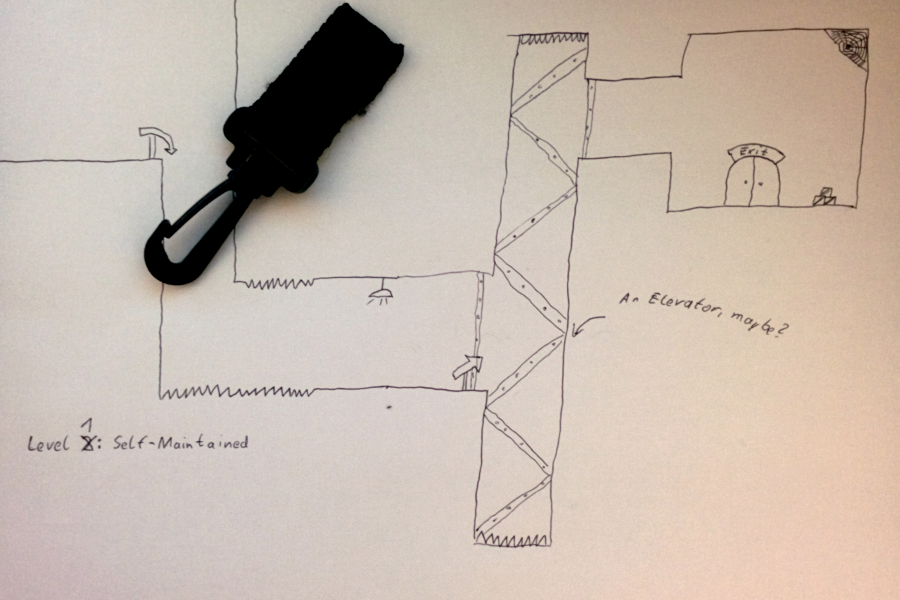 Exit
An Elevator, maybe?
1
Level X: Self-Maintained